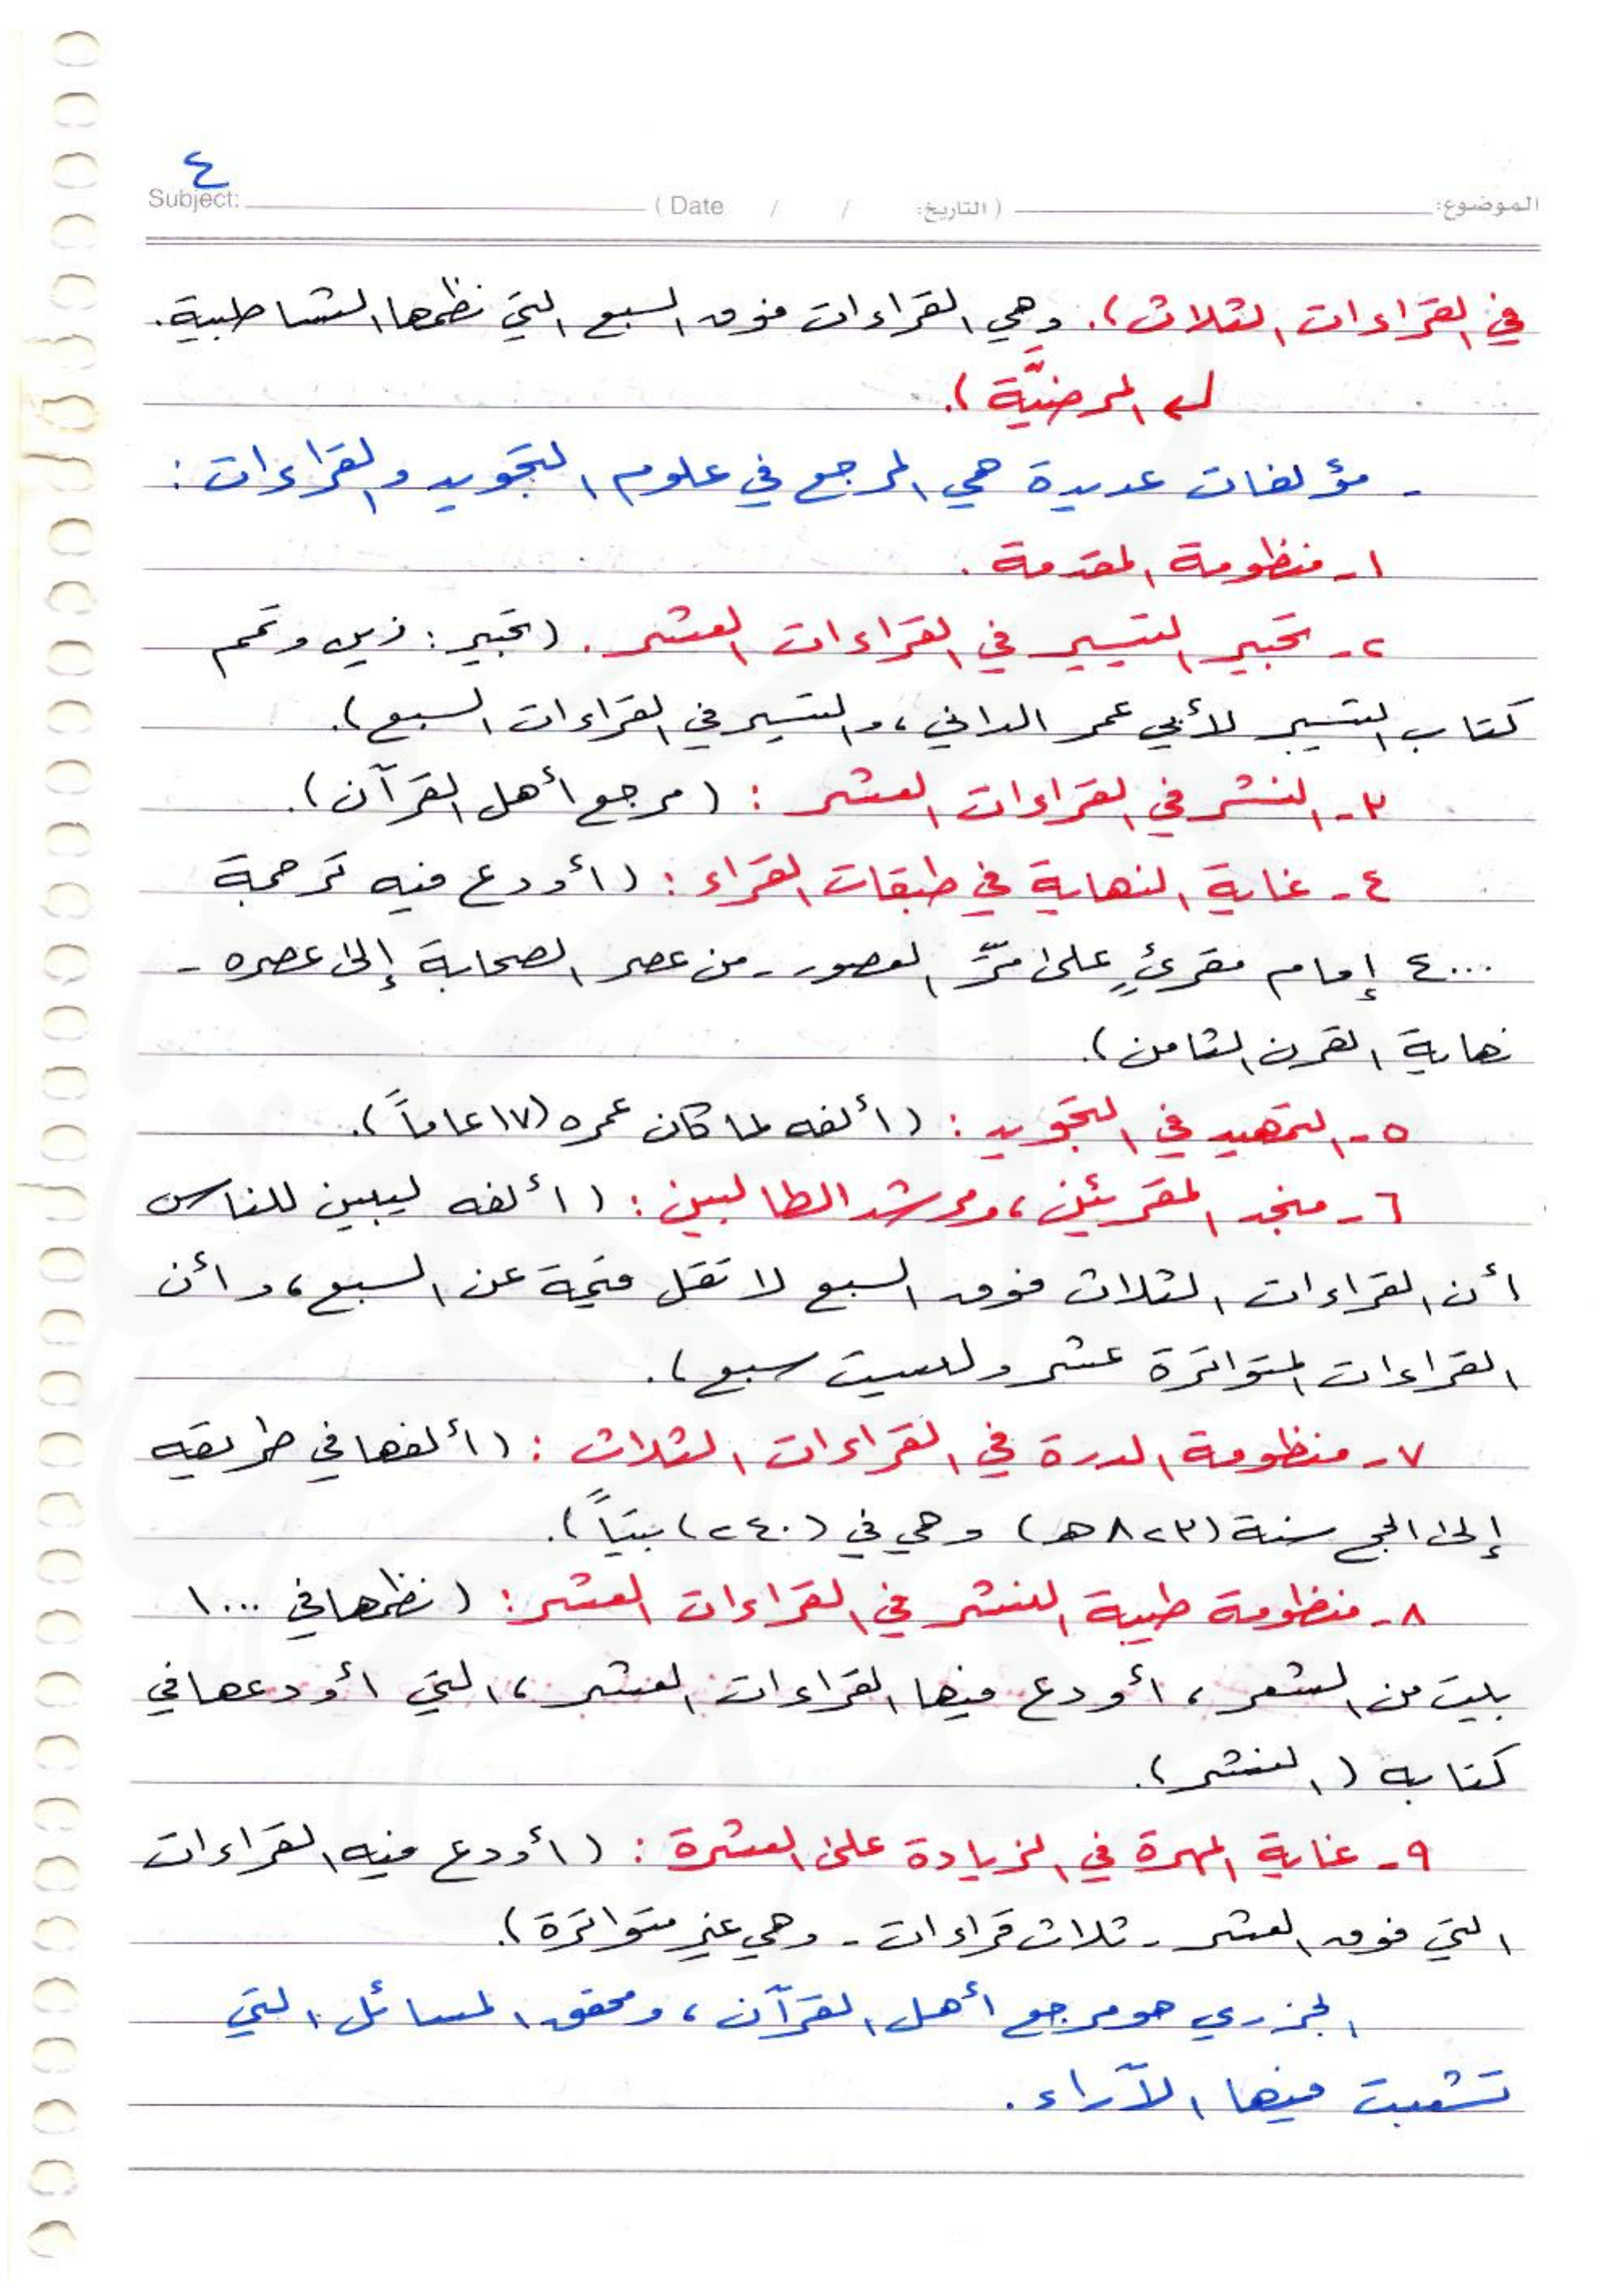 ٤
الموضوع: (التاريخ: / / Date ) Subject:
في القراءات الثلاث). وهي القراءات فوق السبع التي نظمها الشاطبية.
المرضيَّة).
- مؤلفات عديدة هي المرجع في علوم التجويد والقراءات:
١- منظومة المقدمة.
٢- تحبير التيسير في القراءات العشر. (تحبير: زين وتمم
كتاب التيسير لأبي عمر الداني، والتيسير في القراءات السبع).
٣- النشر في القراءات العشر: (مرجع أهل القرآن).
٤- غاية النهاية في طبقات القراء: (أودع فيه ترجمة
٤٠٠٠ إمام مقرئٍ على مرِّ العصور - من عصر الصحابة إلى عصره -
نهاية القرن الثامن).
٥- التمهيد في التجويد: (ألفه لما كان عمره (١٧ عاماً).
٦- منجد المقرئين، ومرشد الطالبين: (ألفه ليبين للناس
أن القراءات الثلاث فوق السبع لا تقل قيمة عن السبع، وأن
القراءات المتواترة عشر وليست سبع).
٧- منظومة الدرة في القراءات الثلاث: (ألفها في طريقه
إلى الحج سنة (٨٢٣هـ) وهي في (٢٤٠) بيتاً).
٨- منظومة طيبة النشر في القراءات العشر: (نظمها في ١٠٠٠
بيت من الشعر، أودع فيها القراءات العشر، التي أودعها في
كتابه (النشر).
٩- غاية المهرة في الزيادة على العشرة: (أودع فيه القراءات
التي فوق العشر - ثلاث قراءات - وهي غير متواترة).
الجزري هو مرجع أهل القرآن، ومحقق المسائل التي
تشعبت فيها الآراء.